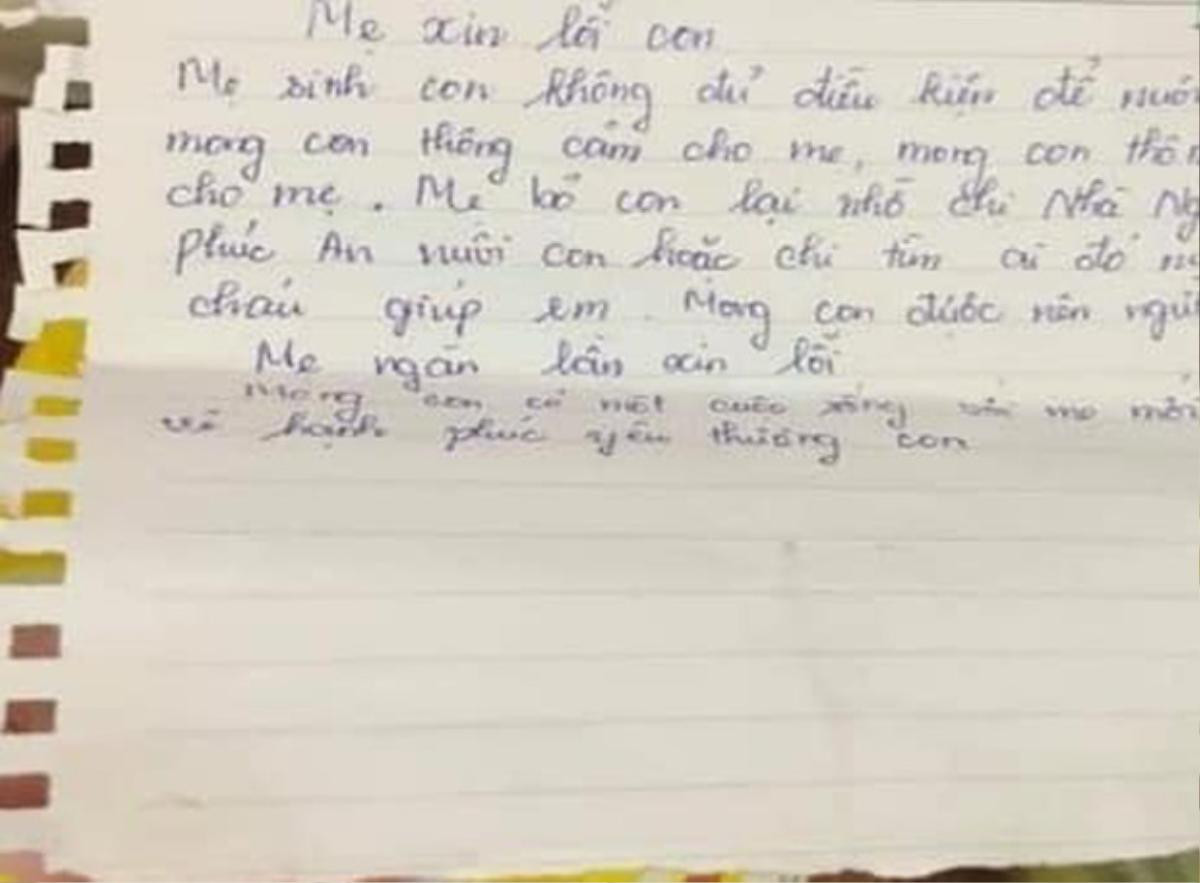 Mẹ xin lỗi con
Mẹ sinh con không đủ điều kiện để nuôi
mong con thông cảm cho mẹ, mong con thôn
cho mẹ. Mẹ bỏ con lại nhờ chị Nhà Ng
Phúc An nuôi con hoặc chị tìm ai đó nu
cháu giúp em. Mong con được nên ngư
Mẹ ngàn lần xin lỗi
Mong con có một cuộc sống với mẹ mới
và hạnh phúc yêu thương con